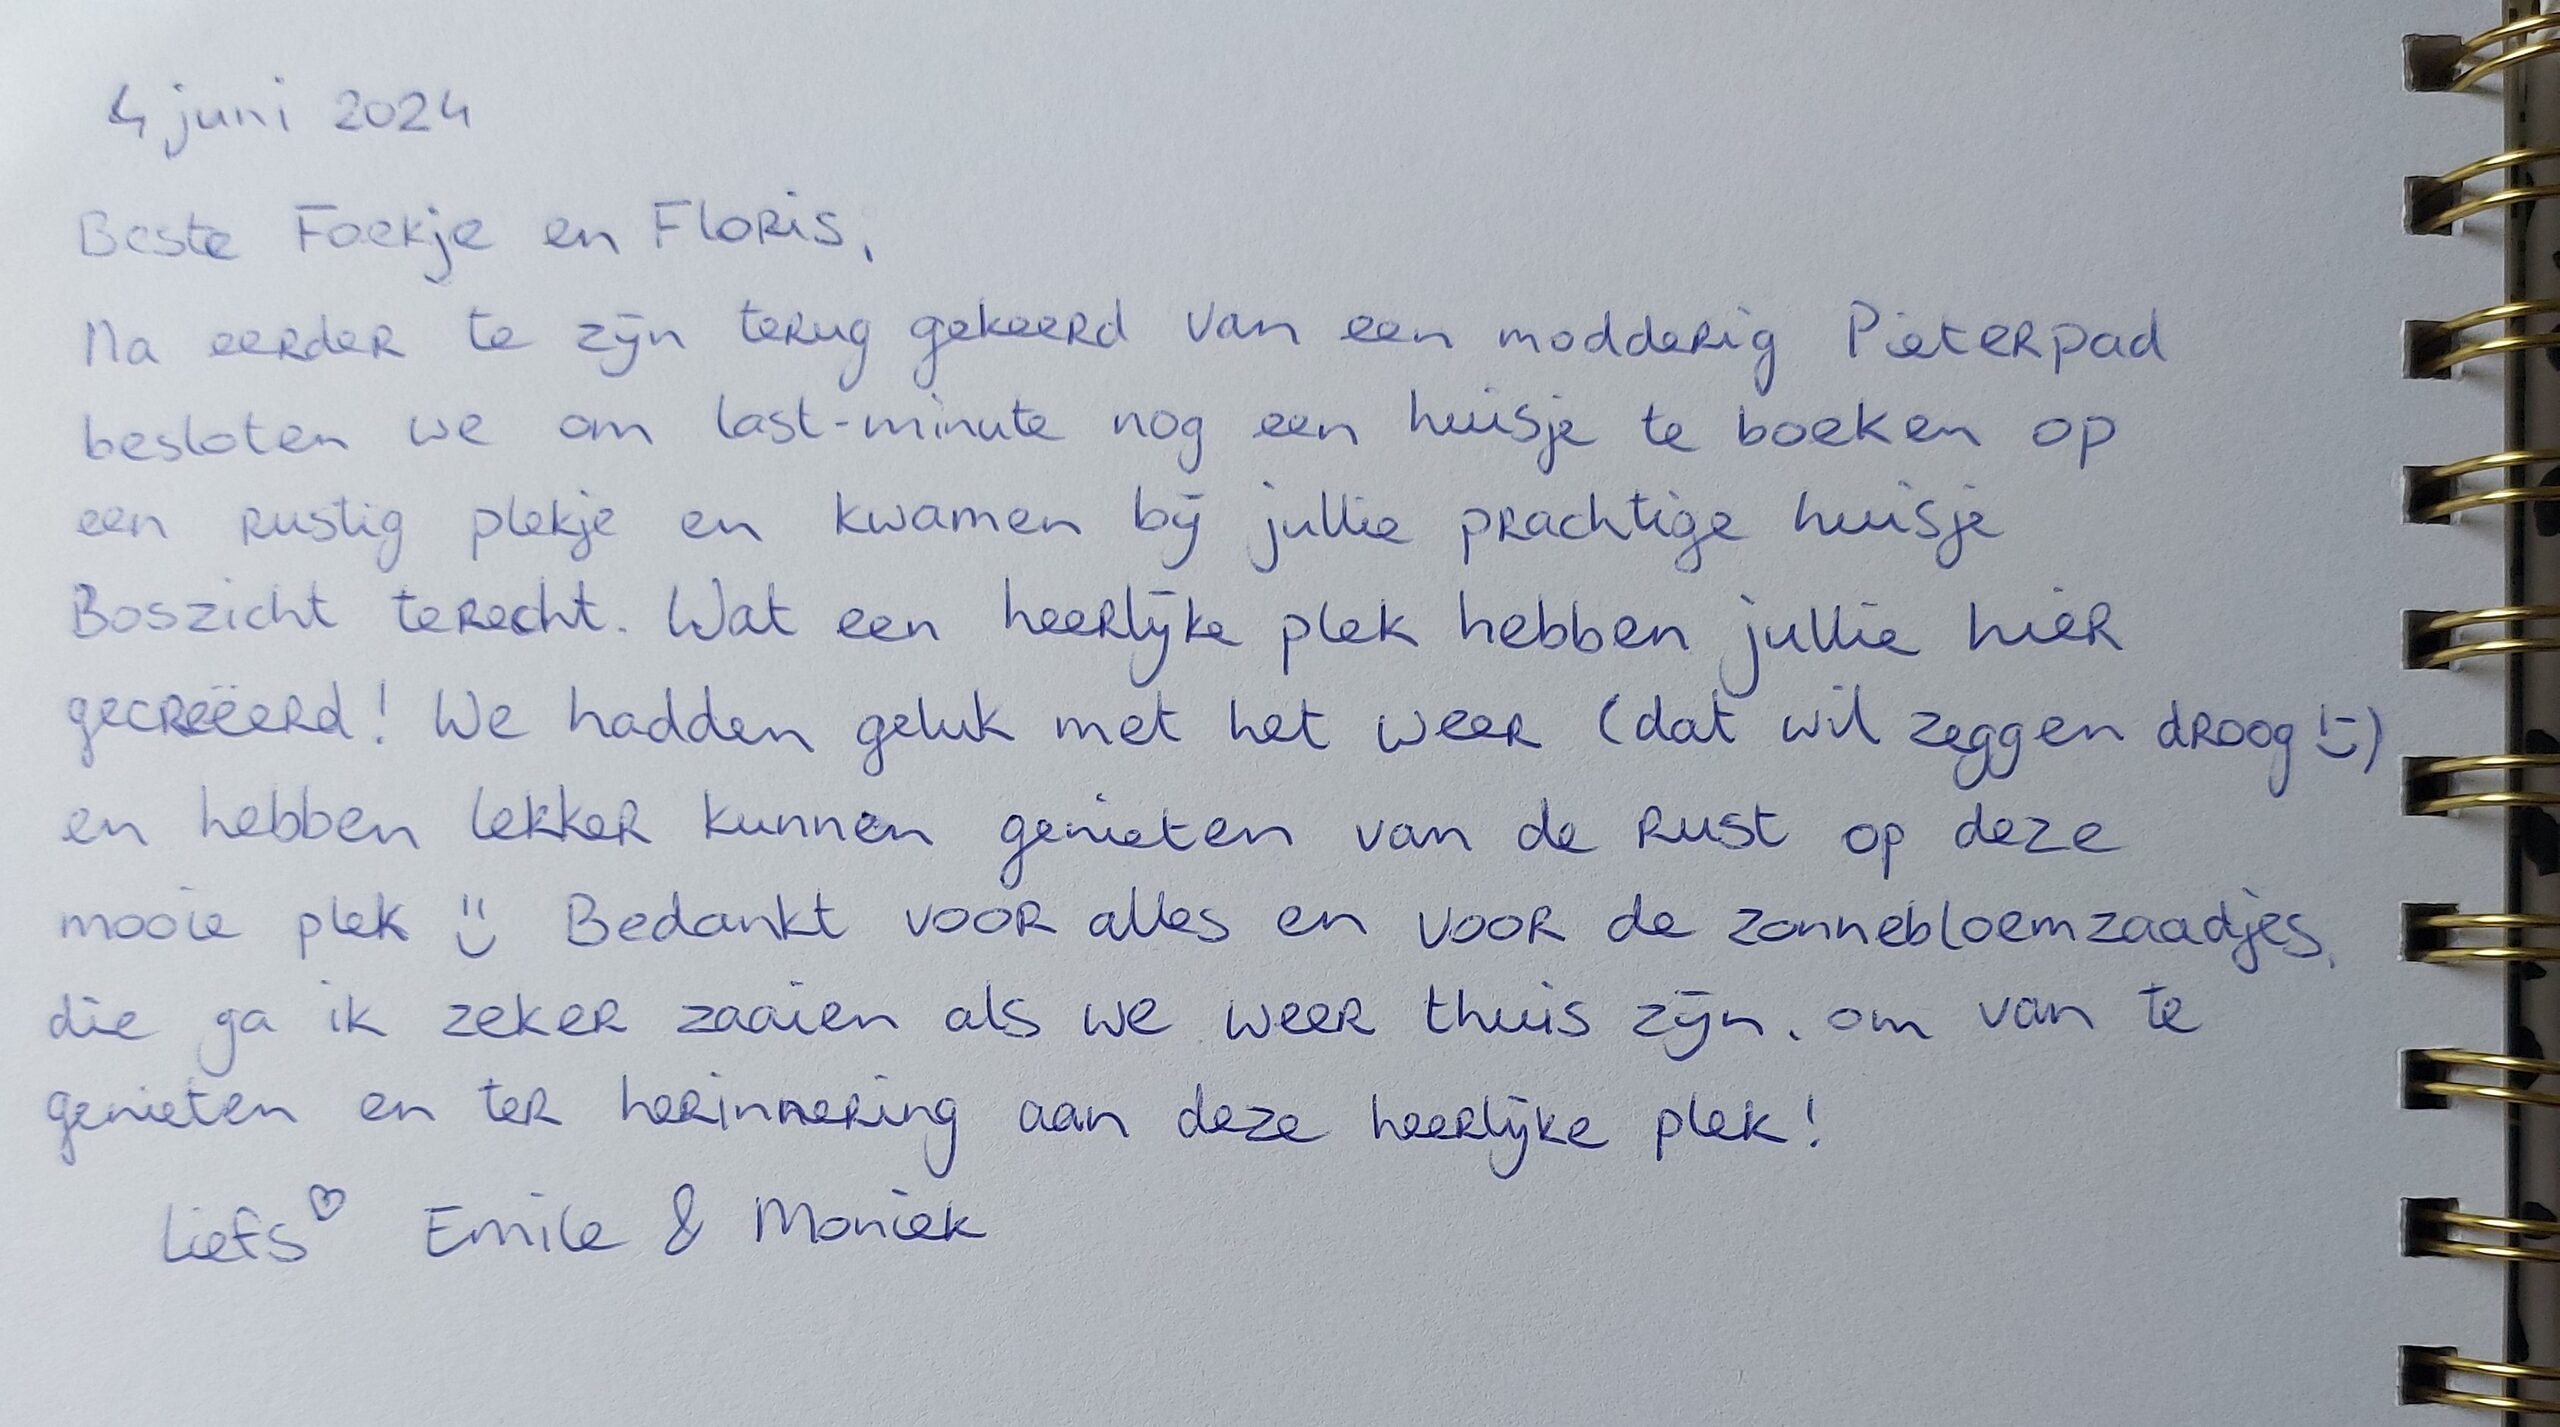 4 juni 2024
Beste Foekje en Floris,
Na eerder te zijn terug gekeerd van een modderig Pieterpad
besloten we om last-minute nog een huisje te boeken op
een rustig plekje en kwamen bij jullie prachtige huisje
Boszicht terecht. Wat een heerlijke plek hebben jullie hier
gecreëerd! We hadden geluk met het weer (dat wil zeggen droog!)
en hebben lekker kunnen genieten van de rust op deze
mooie plek Bedankt voor alles en voor de zonnebloemzaadjes,
die ga ik zeker zaaien als we weer thuis zijn. om van te
genieten en ter herinnering aan deze heerlijke plek!
Liefs♡ Emile & Moniek